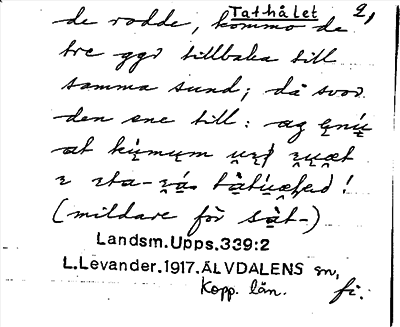 Tathålet 2,
de rodde, kommo de
tre ggr tillbaka till
samma sund; då svor
den ene till: ag
at
(mildare för sàt-)
Landsm.Upps.339:2
L.Levander.1917.ÄLVDALENS sn,
Kopp. län. fi.